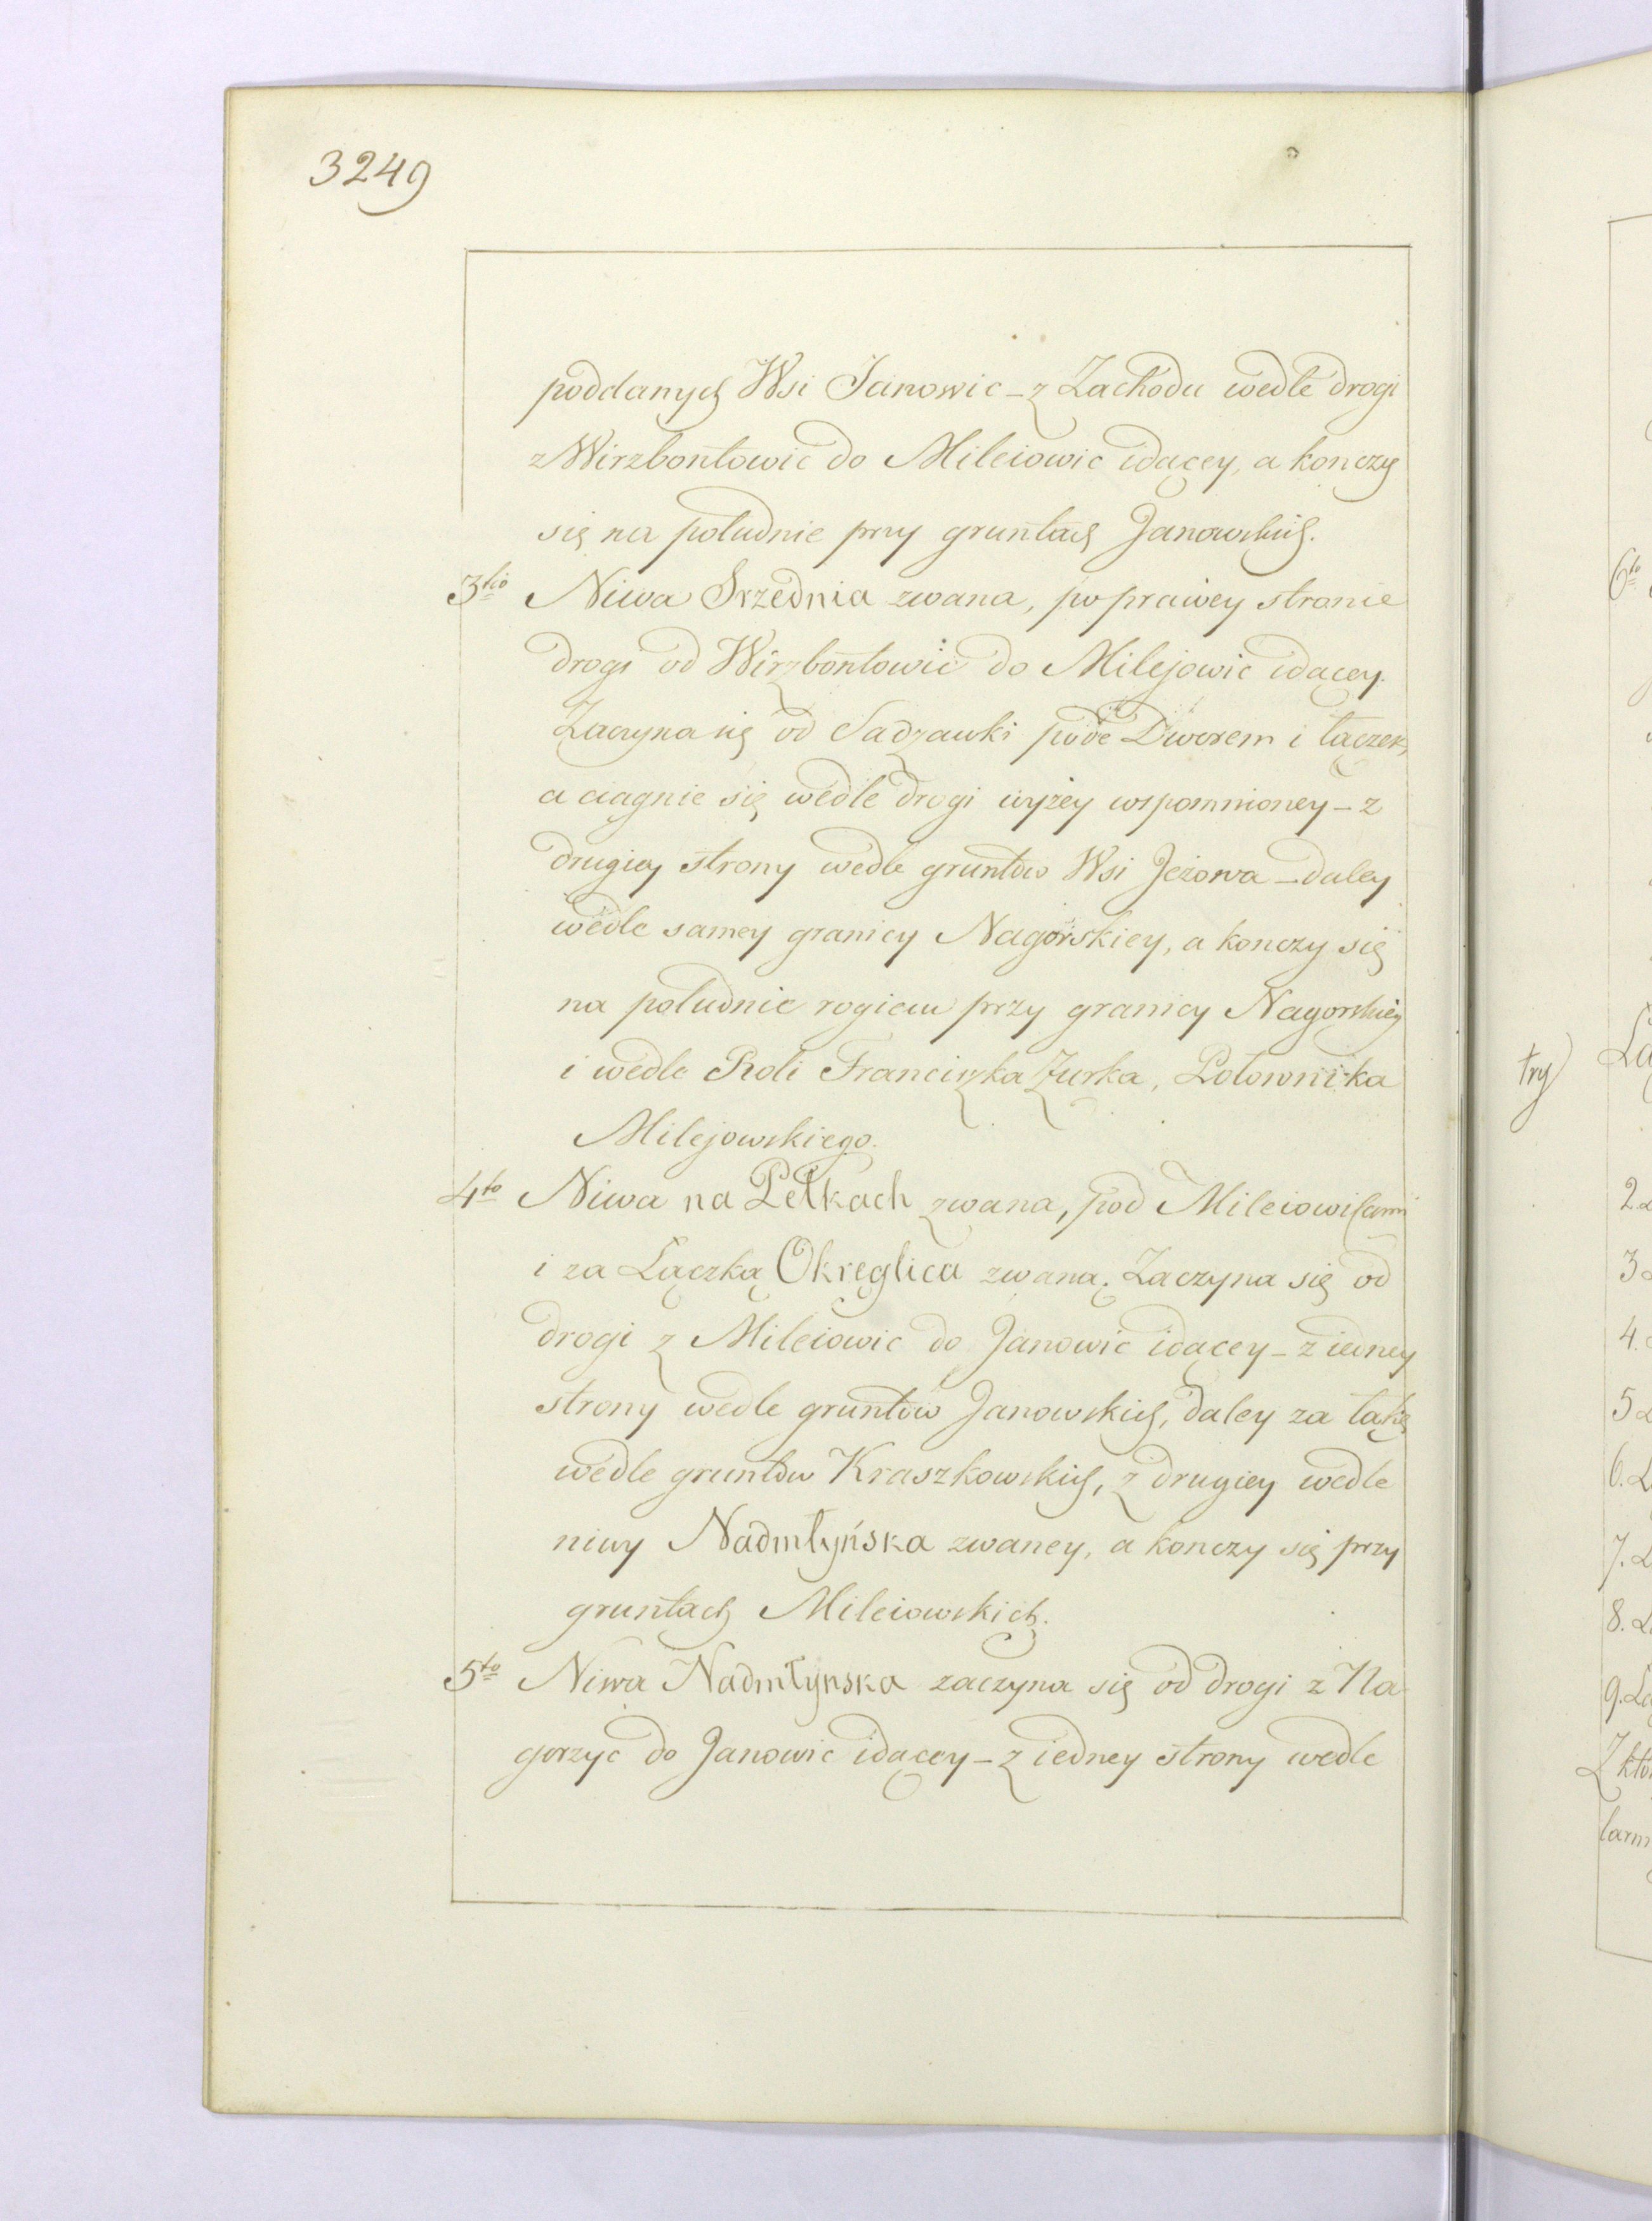 3249
poddanych Wsi Janowic – z Zachodu wedle drogi
z Wirzbontowic do Mileiowic idącey, a konczy
się na południe przy gruntach Janowskich.
3tio Niwa Srzednia zwana, po prawey stronie
drogi od Wirzbontowic do Milejowic idącey.
Zaczyna się od Sadzawki pode Dworem i łączek,
a ciągnie się wedle drogi wyżey wspomnioney – z
drugiey strony wedle gruntów Wsi Jeżowa – daley
wedle samey granicy Nagorskiey, a konczy się
na południe rogiem przy granicy Nagorskiey
i wedle Roli Franciszka Zurka, Połownika
Milejowskiego.
4to Niwa na Pełkach zwana, pod Mileiowicami
i za Łączką Okreglica zwaną. Zaczyna się od
drogi z Mileiowic do Janowic idącey – z iedney
strony wedle gruntów Janowskich, daley za łąką
wedle gruntów Kraszkowskich, z drugiey wedle
niwy Nadmłyńska zwaney, a konczy się przy
gruntach Mileiowskich.
5to Niwa Nadmłynska zaczyna się od drogi z Na
gorzyc do Janowic idącey – z iedney strony wedle
try
6to
3
4.
7.
8.